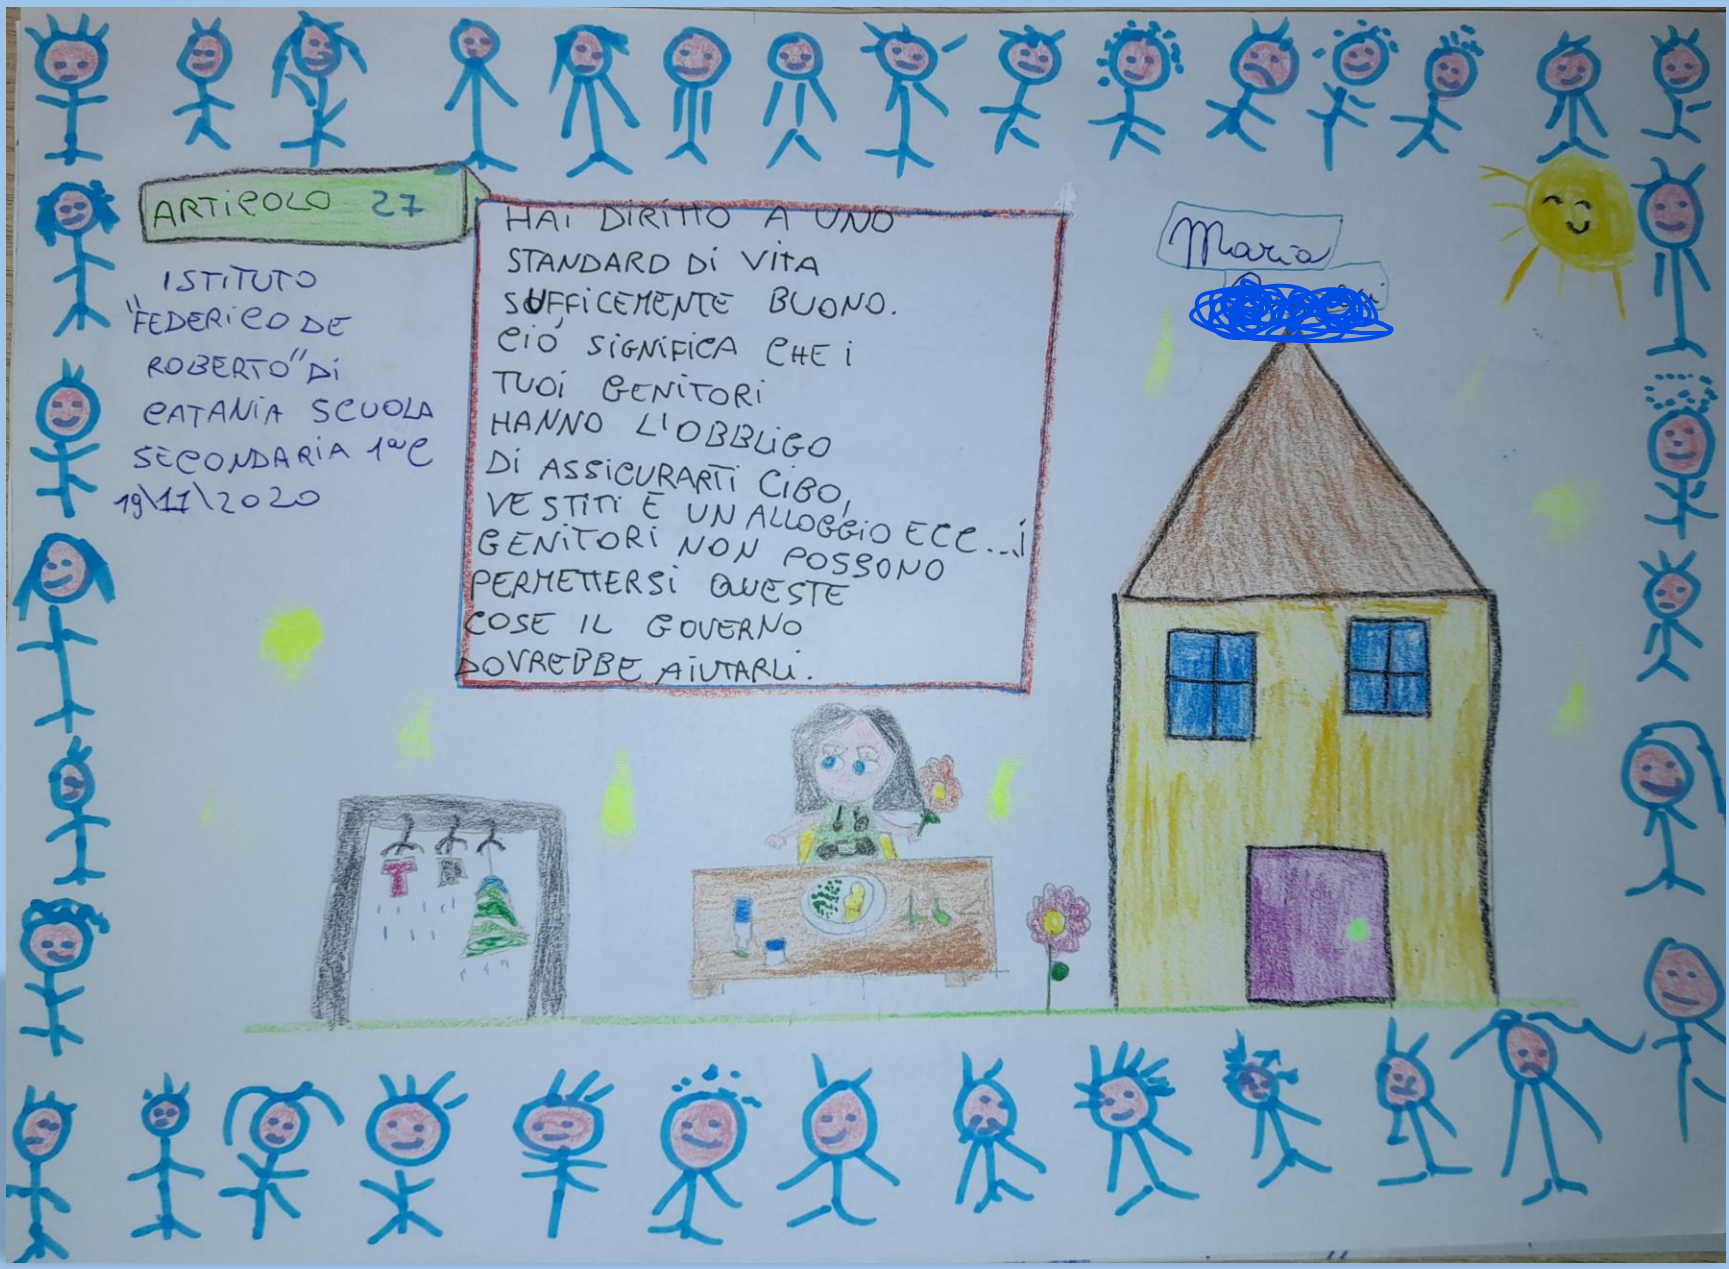 ARTICOLO 27
ISTITUTO
"FEDERICO DE
ROBERTO" DI
CATANIA SCUOLA
SECONDARIA 1ªC
19\11\2020
HAI DIRITTO A UNO
STANDARD DI VITA
SUFFICEMENTE BUONO.
CIÓ SIGNIFICA CHE i
TUOI GENITORI
HANNO L'OBBLIGO
DI ASSICURARTI CIBO,
VESTITI E UN ALLOGGIO ECC...i
GENITORI NON POSSONO
PERMETTERSI QUESTE
COSE IL GOVERNO
DOVREBBE AIUTARLI.
Maria